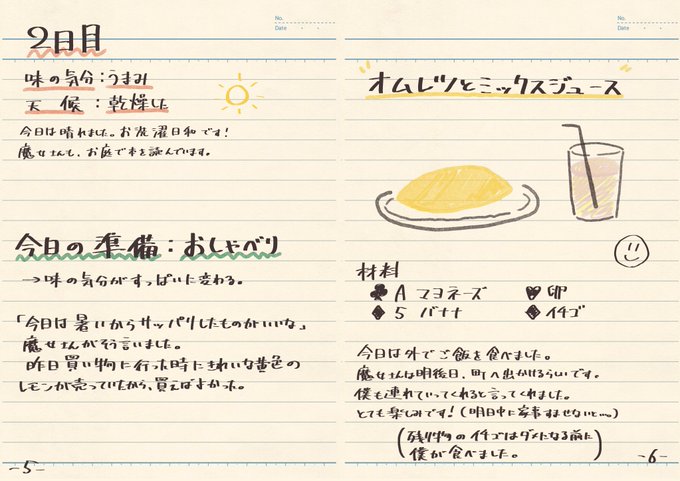 No.
Date
2日目
味の気分：うまみ
天候：乾燥した
今日は晴れました。お洗濯日和です！
魔女さんも、お庭で本を読んでいます。
今日の準備：おしゃべり
→味の気分がすっぱいに変わる。
「今日は暑いからサッパリしたものがいいな」
魔女さんがそう言いました。
昨日買い物に行った時にきれいな黄色の
レモンが売っていたから、買えばよかった。
-5-
No.
Date
オムレツとミックスジュース
材料
♣A マヨネーズ
♥ 卵
♦5 バナナ
♦ イチゴ
今日は外でご飯を食べました。
魔女さんは明後日、町へ出かけるらしいです。
僕も連れていってくれると言ってくれました。
とても楽しみです！（明日中に家事すませないと…。）
（残り物のイチゴはダメになる前に
僕が食べました。）
-6-